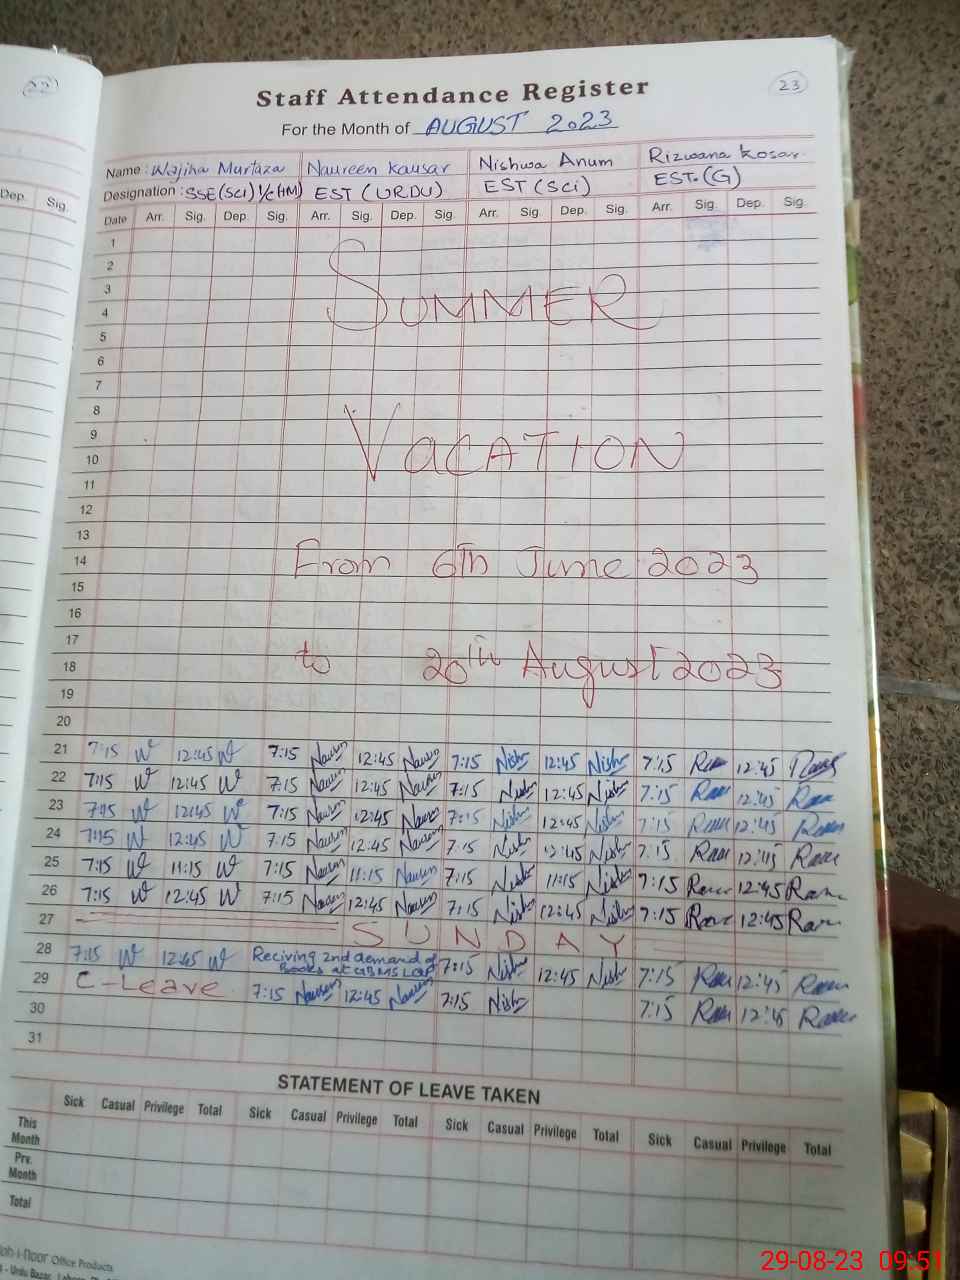 23
Staff Attendance Register
For the Month of AUGUST 2023
Name: Wajiha Murtaza Naureen Kausar Nishwa Anum Rizwana Kosar
Designation: SSE(SCI) I/C(HM) EST (URDU) EST (Sci) EST. (G)
Dep. Sig.
Date Arr. Sig. Dep. Sig. Arr. Sig. Dep. Sig. Arr. Sig. Dep. Sig. Arr. Sig. Dep. Sig.
1
2
3
SUMMER
4
5
6
7
8
9
VACATION
10
11
12
13
14 From 6th June 2023
15
16
17
18 to 20th August 2023
19
20
21 7:15 W 12:45 W 7:15 Nausen 12:45 Nausen 7:15 Nish 12:45 Nish 7:15 Ram 12:45
22 7:15 W 12:45 W 7:15 Nausen 12:45 Nausen 7:15 Nish 12:45 Nish 7:15 Ram 12:45 Ram
23 7:15 W 12:45 W 7:15 Nausen 12:45 Nausen 7:15 Nish 12:45 Nish 7:15 Ram 12:45 Ram
24 7:15 W 12:45 W 7:15 Nausen 12:45 Nausen 7:15 Nish 12:45 Nish 7:15 Ram 12:45 Ram
25 7:15 W 11:15 W 7:15 Nausen 11:15 Nausen 7:15 Nish 11:15 Nish 7:15 Ram 12:45 Ram
26 7:15 W 12:45 W 7:15 Nausen 12:45 Nausen 7:15 Nish 12:45 Nish 7:15 Ram 12:45 Ram
27 SUNDAY
28 7:15 W 12:45 W Reciving 2nd demand of Books at GBMS 7:15 Nish 12:45 Nish 7:15 Ram 12:45 Ram
29 C-Leave 7:15 Nausen 12:45 Nausen 7:15 Nish 7:15 Ram 12:45 Ram
30
31
STATEMENT OF LEAVE TAKEN
Sick Casual Privilege Total Sick Casual Privilege Total Sick Casual Privilege Total Sick Casual Privilege Total
This Month
Prv. Month
Total
Office Products
Urdu Bazar,
29-08-23 09:51